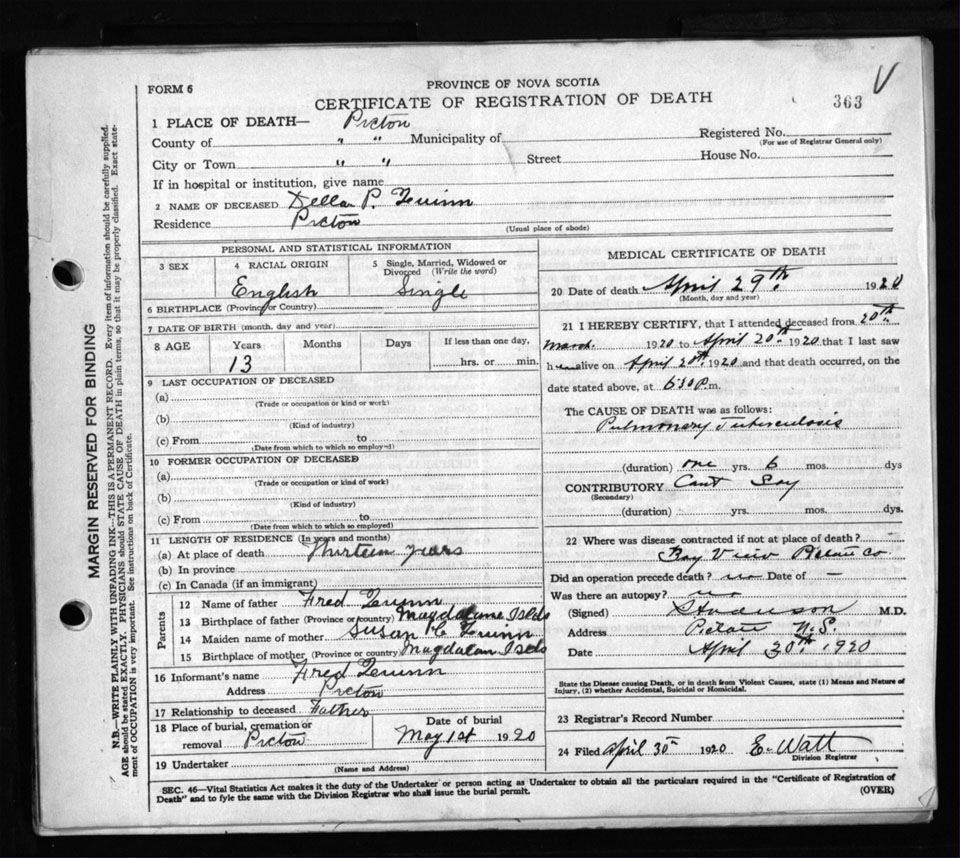 FORM 6
PROVINCE OF NOVA SCOTIA
CERTIFICATE OF REGISTRATION OF DEATH
363 V
1 PLACE OF DEATH— Pictou
County of " " Municipality of
Registered No.
(For use of Registrar General only)
City or Town " " Street House No.
If in hospital or institution, give name
2 NAME OF DECEASED Della P. Quinn
Residence Pictou
(Usual place of abode)
PERSONAL AND STATISTICAL INFORMATION
3 SEX
4 RACIAL ORIGIN English
5 Single, Married, Widowed or Divorced (Write the word) Single
6 BIRTHPLACE (Province or Country)
7 DATE OF BIRTH (month, day and year)
8 AGE Years Months Days If less than one day,
13 hrs. or min.
9 LAST OCCUPATION OF DECEASED
(a)
(Trade or occupation or kind or work)
(b)
(Kind of industry)
(c) From to
(Date from which to which so employed)
10 FORMER OCCUPATION OF DECEASED
(a)
(Trade or occupation or kind of work)
(b)
(Kind of industry)
(c) From to
(Date from which to which so employed)
11 LENGTH OF RESIDENCE (In years and months)
(a) At place of death Thirteen years
(b) In province
(c) In Canada (if an immigrant)
Parents
12 Name of father Fred Quinn
13 Birthplace of father (Province or country) Magdalene Islds
14 Maiden name of mother Susan C Quinn
15 Birthplace of mother (Province or country) Magdalan Islds
16 Informant's name Fred Quinn
Address Pictou
17 Relationship to deceased Father
18 Place of burial, cremation or removal Pictou
Date of burial
May 1st 1920
19 Undertaker
(Name and Address)
MEDICAL CERTIFICATE OF DEATH
20 Date of death April 29th 1920
(Month, day and year)
21 I HEREBY CERTIFY, that I attended deceased from 20th
March 1920 to April 20th 1920 that I last saw
h alive on April 20th 1920 and that death occurred, on the
date stated above, at 6:30 P.m.
The CAUSE OF DEATH was as follows:
Pulmonary Tuberculosis
(duration) one yrs. 6 mos. dys
CONTRIBUTORY Cant Say
(Secondary)
(duration) yrs. mos. dys.
22 Where was disease contracted if not at place of death?
Bay View Pictou Co
Did an operation precede death? no Date of —
Was there an autopsy? no
(Signed) M.D.
Address Pictou N.S.
Date April 30th 1920
State the Disease causing Death, or in death from Violent Causes, state (1) Means and Nature of
Injury, (2) whether Accidental, Suicidal or Homicidal.
23 Registrar's Record Number
24 Filed April 30th 1920 E. Watt
Division Registrar
SEC. 46—Vital Statistics Act makes it the duty of the Undertaker or person acting as Undertaker to obtain all the particulars required in the "Certificate of Registration of
Death" and to fyle the same with the Division Registrar who shall issue the burial permit.
(OVER)
MARGIN RESERVED FOR BINDING
N.B.—WRITE PLAINLY WITH UNFADING INK—THIS IS A PERMANENT RECORD. Every item of information should be carefully supplied.
AGE should be stated EXACTLY. PHYSICIANS should STATE CAUSE OF DEATH in plain terms, so that it may be properly classified. Exact state-
ment of OCCUPATION is very important. See instructions on back of Certificate.